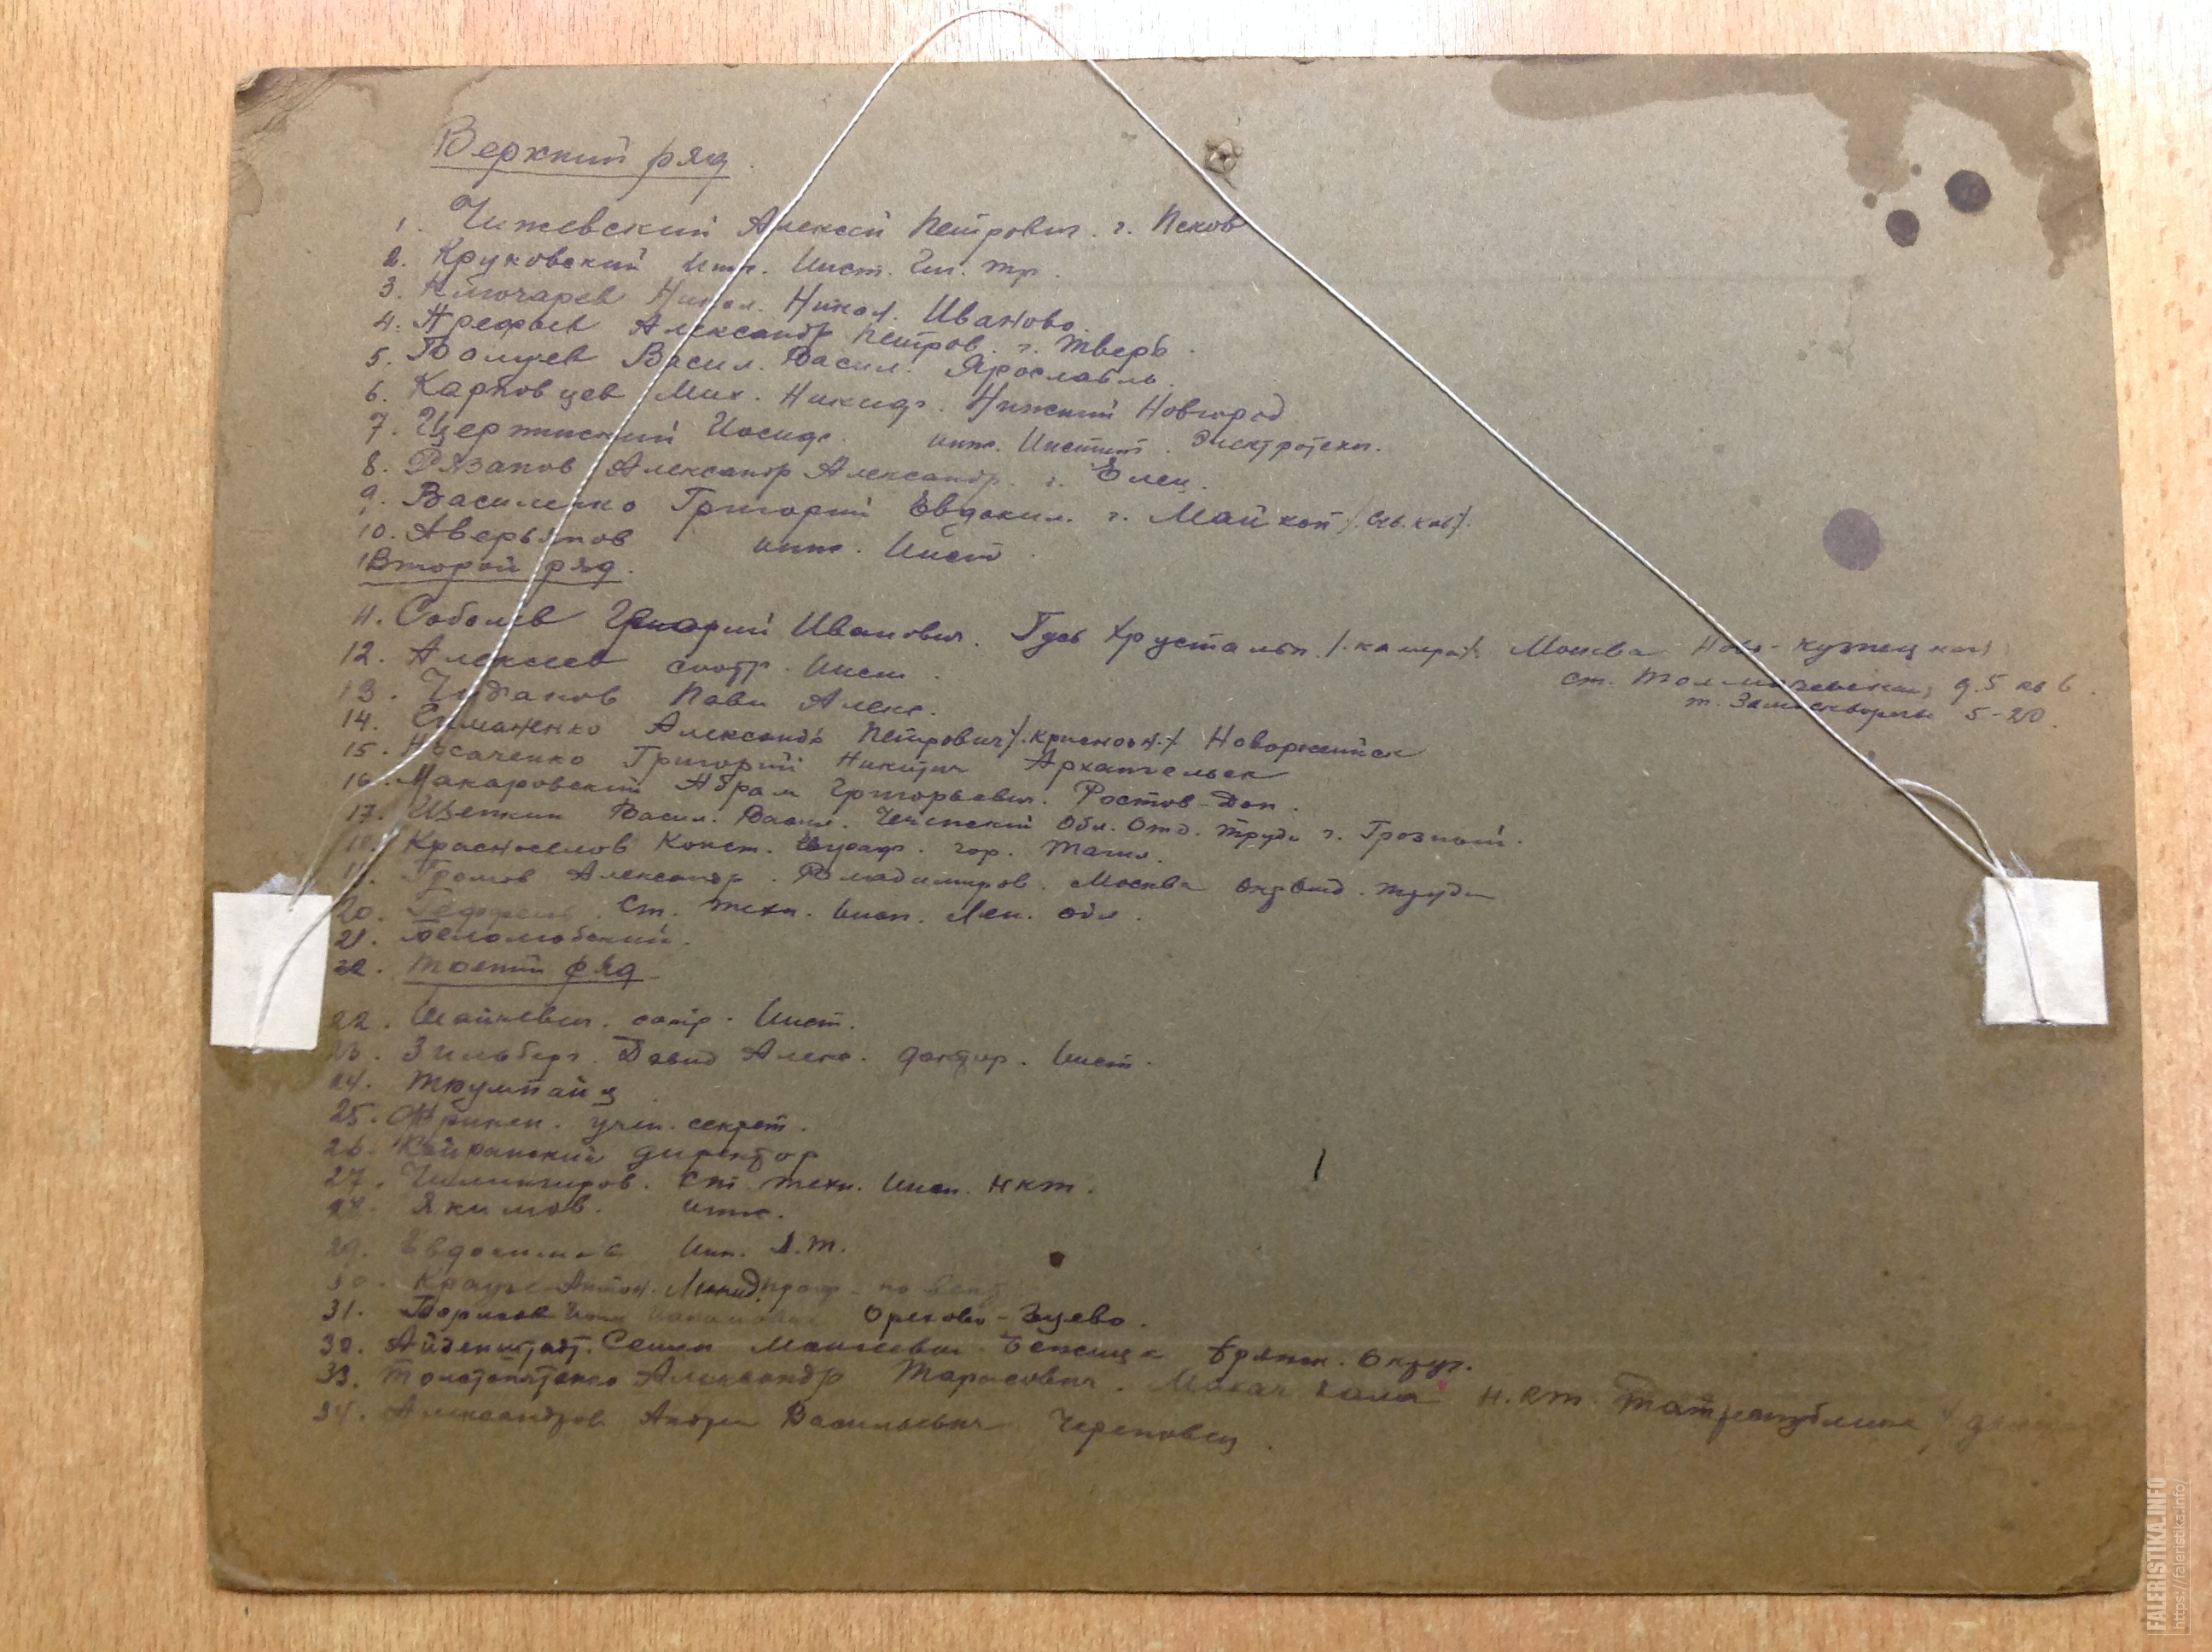 Верхний ряд.
1. Чижевский Алексей Петрович. г. Псков
2. Круковский инж. Инст.
3. Ключарев Никол. Никол. Иваново.
4. Арефьев Александр Петров. г. Тверь.
5. Васил. Васил. Ярославль.
6. Карповцев Мих. Никиф. Нижний Новгород
7. Иосиф. инж. Инстит. Электротехн.
8. Рязанов Александр Александр. г. Елец.
9. Василенко Григорий Евдоким. г. Майкоп /. Сев. кав/.
10. Аверьянов инж. Инст.
Второй ряд.
11. Соболев Григорий Иванович. Гусь Хрустальн. Москва Ново-Кузнецкая
ст. Толмачевский д. 5 кв 6.
т. Замоскворечье 5-20.
12. Алексеев сотр. Инст.
13. Павл Алекс.
14. Симаненко Александр Петрович Новороссийск
15. Носаченко Григорий Никитич Архангельск
16. Макаровский Абрам Григорьевич. Ростов-Дон.
17. Цепкин Васил. Васил. Чеченский Обл. Отд. Труда г. Грозный.
18. Красноселов Конст. гор. Тагил.
19. Громов Александр. Владимиров. Москва Окр Отд. Труда
20. Ст. техн. Инсп. Лен. обл.
21. Беломобский.
22. Третий ряд
22. Шайкевич. сотр. Инст.
23. Зильбер. Давид Алекс. доктор. Инст.
24. Трумпайц
25. учен. секрет.
26. Кайранский директор
27. Чилингиров. Ст техн. Инсп. НКТ.
28. Якимов. инж.
29. Евдокимов Инж. Л.Т.
30. Краузе Антон. Леонид проф. по
31. Борисов Орехово-Зуево.
32. Айзенштадт. Семен Моисеевич Бежица Брянск. Округ.
33. Толстопятенко Александр Тарасович. Махач Кала Н.К.Т.
34. Александров Андрей Васильевич Череповец.
FALERISTIKA.INFO
https://faleristika.info/